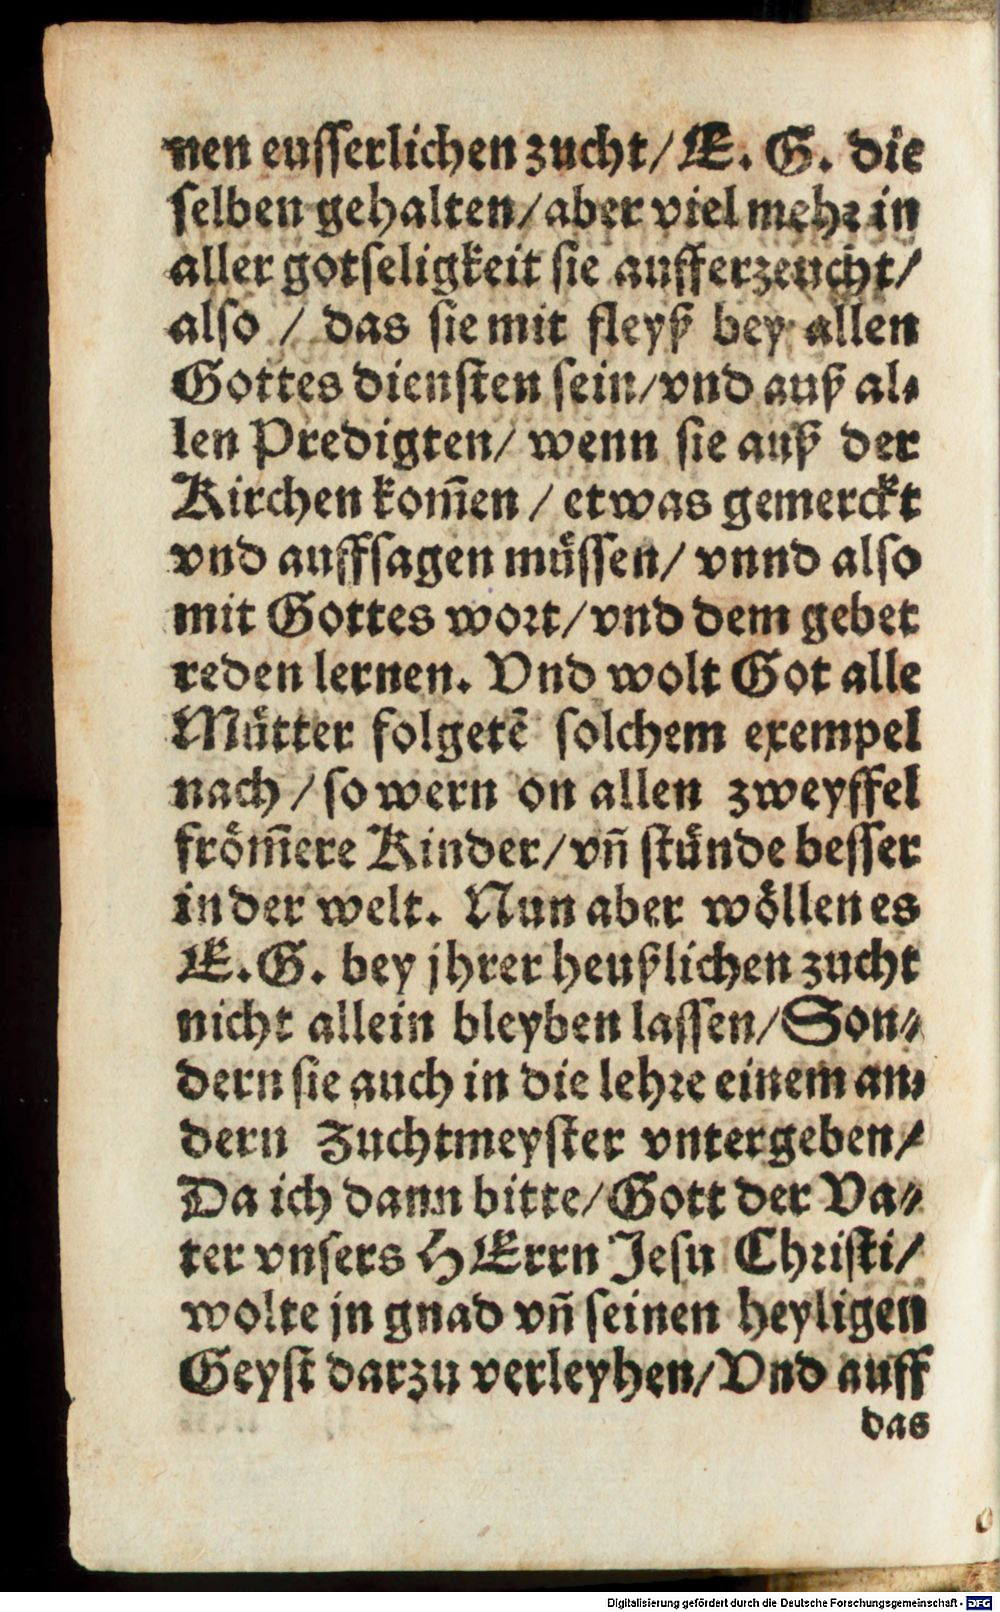 nen eusserlichen zucht/ E. G. die
selben gehalten/ aber viel mehr in
aller gotseligkeit sie aufferzeucht/
also / das sie mit fleyß bey allen
Gottes diensten sein/ vnd auß al⸗
len Predigten/ wenn sie auß der
Kirchen kom̃en / etwas gemerckt
vnd auffsagen müssen/ vnnd also
mit Gottes wort/ vnd dem gebet
reden lernen. Vnd wolt Got alle
Mütter folgetẽ solchem exempel
nach / so wern on allen zweyffel
from̃ere Kinder/ vñ stünde besser
in der welt. Nun aber wöllen es
E. G. bey jhrer heußlichen zucht
nicht allein bleyben lassen/ Son⸗
dern sie auch in die lehre einem an⸗
dern Zuchtmeyster vntergeben/
Da ich dann bitte/ Gott der Va⸗
ter vnsers HErrn Jesu Christi/
wolte jn gnad vñ seinen heyligen
Geyst darzu verleyhen/ Vnd auff
das
Digitalisierung gefördert durch die Deutsche Forschungsgemeinschaft - DFG